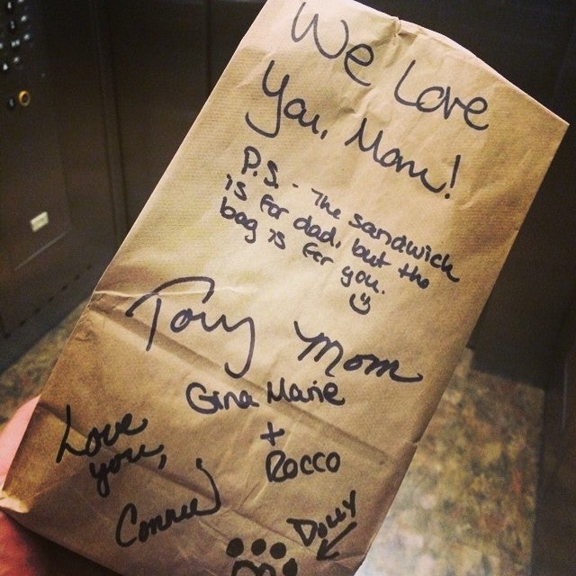 We Love
You, Mom!
P.S. - The sandwich
is for dad, but the
bag is for you.
Tony Mom
Gina Marie
+
Rocco
Love
you,
Connie
Dolly